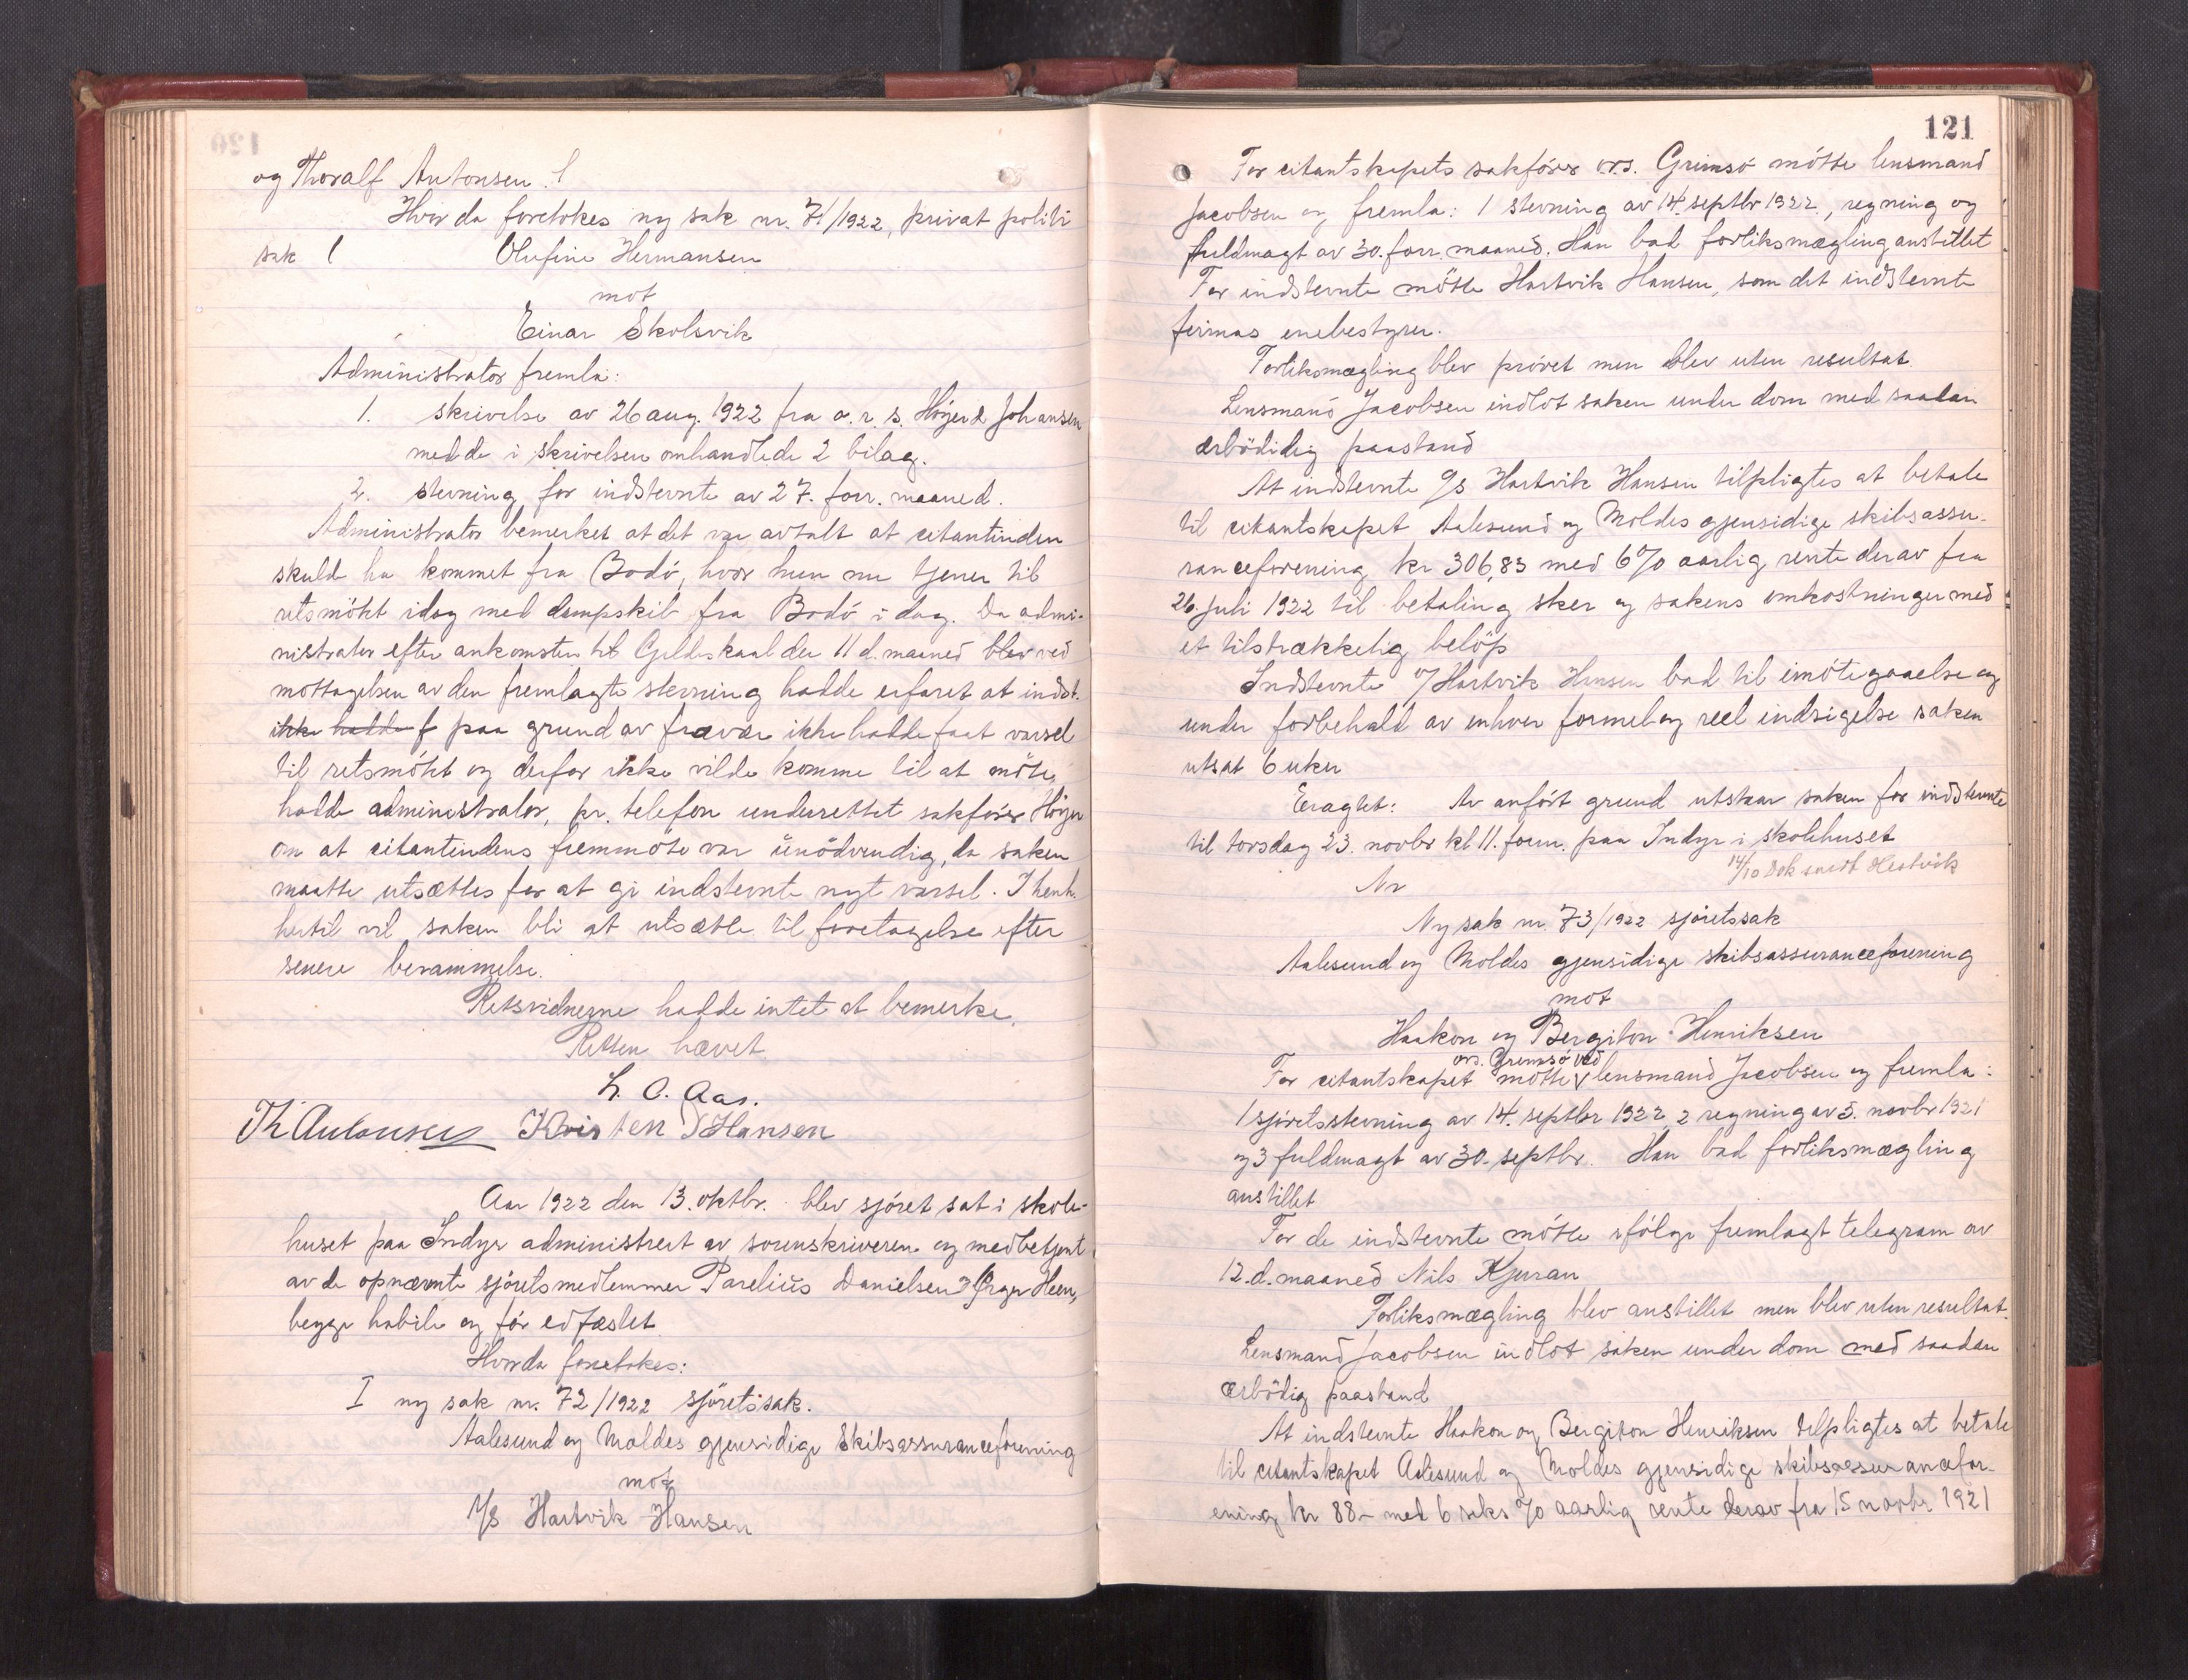 og Thoralf Antonsen. l
Hvor da foretokes ny sak nr. 71/1922, privat politi
sak l Olufine Hermansen
mot
Einar Skolsvik
Administrator fremla:
1. skrivelse av 26 aug. 1922 fra o. r. s. Höyer & Johansen
med de i skrivelsen omhandlede 2 bilag.
2. stevning for indstevnte av 27. forr. maaned.
Administrator bemerket at det var avtalt at citantinden
skulde ha kommet fra Bodö, hvor hun nu tjener til
retsmötet idag med dampskib fra Bodö i dag. Da admi-
nistrator efter ankomsten til Gildeskaal den 11 d. maaned blev ved
mottagelsen av den fremlagte stevning hadde erfaret at indst.
ikke hadde f paa grund av fravær ikke hadde faat varsel
til retsmötet og derfor ikke vilde komme til at möte,
hadde administrator, pr. telefon underrettet sakförer Höyer
om at citantindens fremmöte var unödvendig, da saken
maatte utsættes for at gi indstevnte nyt varsel. I henh.
hertil vil saken bli at utsætte til foretagelse efter
senere berammelse.
Retsvidnerne hadde intet at bemerke.
Retten hævet.
L. O. Aas.
Th Antonsen Kristen Hansen
Aar 1922 den 13. oktbr. blev sjöret sat i skole-
huset paa Indyr administrert av sorenskriveren og medbetjent
av de opnævnte sjöretsmedlemmer Parelius Danielsen og Heen,
begge habile og för edfæstet
Hvorda foretokes:
I ny sak nr. 72/1922 sjöretssak.
Aalesund og Moldes gjensidige Skibsassuranceforening
mot
I/S Hartvik Hansen
121
For citantskapets sakförer o.r.s. Grimsö mötte lensmand
Jacobsen og fremla: 1 stevning av 14. septbr 1922., regning og
fuldmagt av 30. forr. maaned. Han bad forliksmægling anstillet
For indstevnte mötte Hartvik Hansen, som det indstevnte
firmas enebestyrer.
Forliksmægling blev prövet men blev uten resultat.
Lensmand Jacobsen indlot saken under dom med saadan
ærbödidig paastand
At indstevnte I/S Hartvik Hansen tilpligtes at betale
til citantskapet Aalesund og Moldes gjensidige skibsassu-
ranceforening kr 306,83 med 6% aarlig rente derav fra
26. juli 1922 til betaling sker og sakens omkostninger med
et tilstrækkelig belöp
Indstevnte v/ Hartvik Hansen bad til imötegaaelse og
under forbehold av enhver formel og reel indsigelse saken
utsat 6 uker
Eragtet: Av anfört grund utstaar saken for indstevnte
til torsdag 23. novbr kl 11. form. paa Indyr i skolehuset
14/10 Dok sendt Hestvik
Nr
Ny sak nr. 73/1922 sjöretssak
Aalesund og Moldes gjensidige skibsassuranceforening
mot
Haakon og Bergiton Henriksen
ors. Grimsö ved
For citantskapet mötte lensmand Jacobsen og fremla:
1 sjöretsstevning av 14. septbr 1922, 2 regning av 5. novbr 1921
og 3 fuldmagt av 30. septbr. Han bad forliksmægling
anstillet
For de indstevnte mötte ifölge fremlagt telegram av
12. d. maaned Nils Kjeran
Forliksmægling blev anstillet men blev uten resultat.
Lensmand Jacobsen indlot saken under dom med saadan
ærbödig paastand
At indstevnte Haakon og Bergiton Henriksen tilpligtes at betale
til citantskapet Aalesund og Moldes gjensidige skibsassurancefor-
ening kr 88.- med 6 seks % aarlig rente derav fra 15 novbr 1921